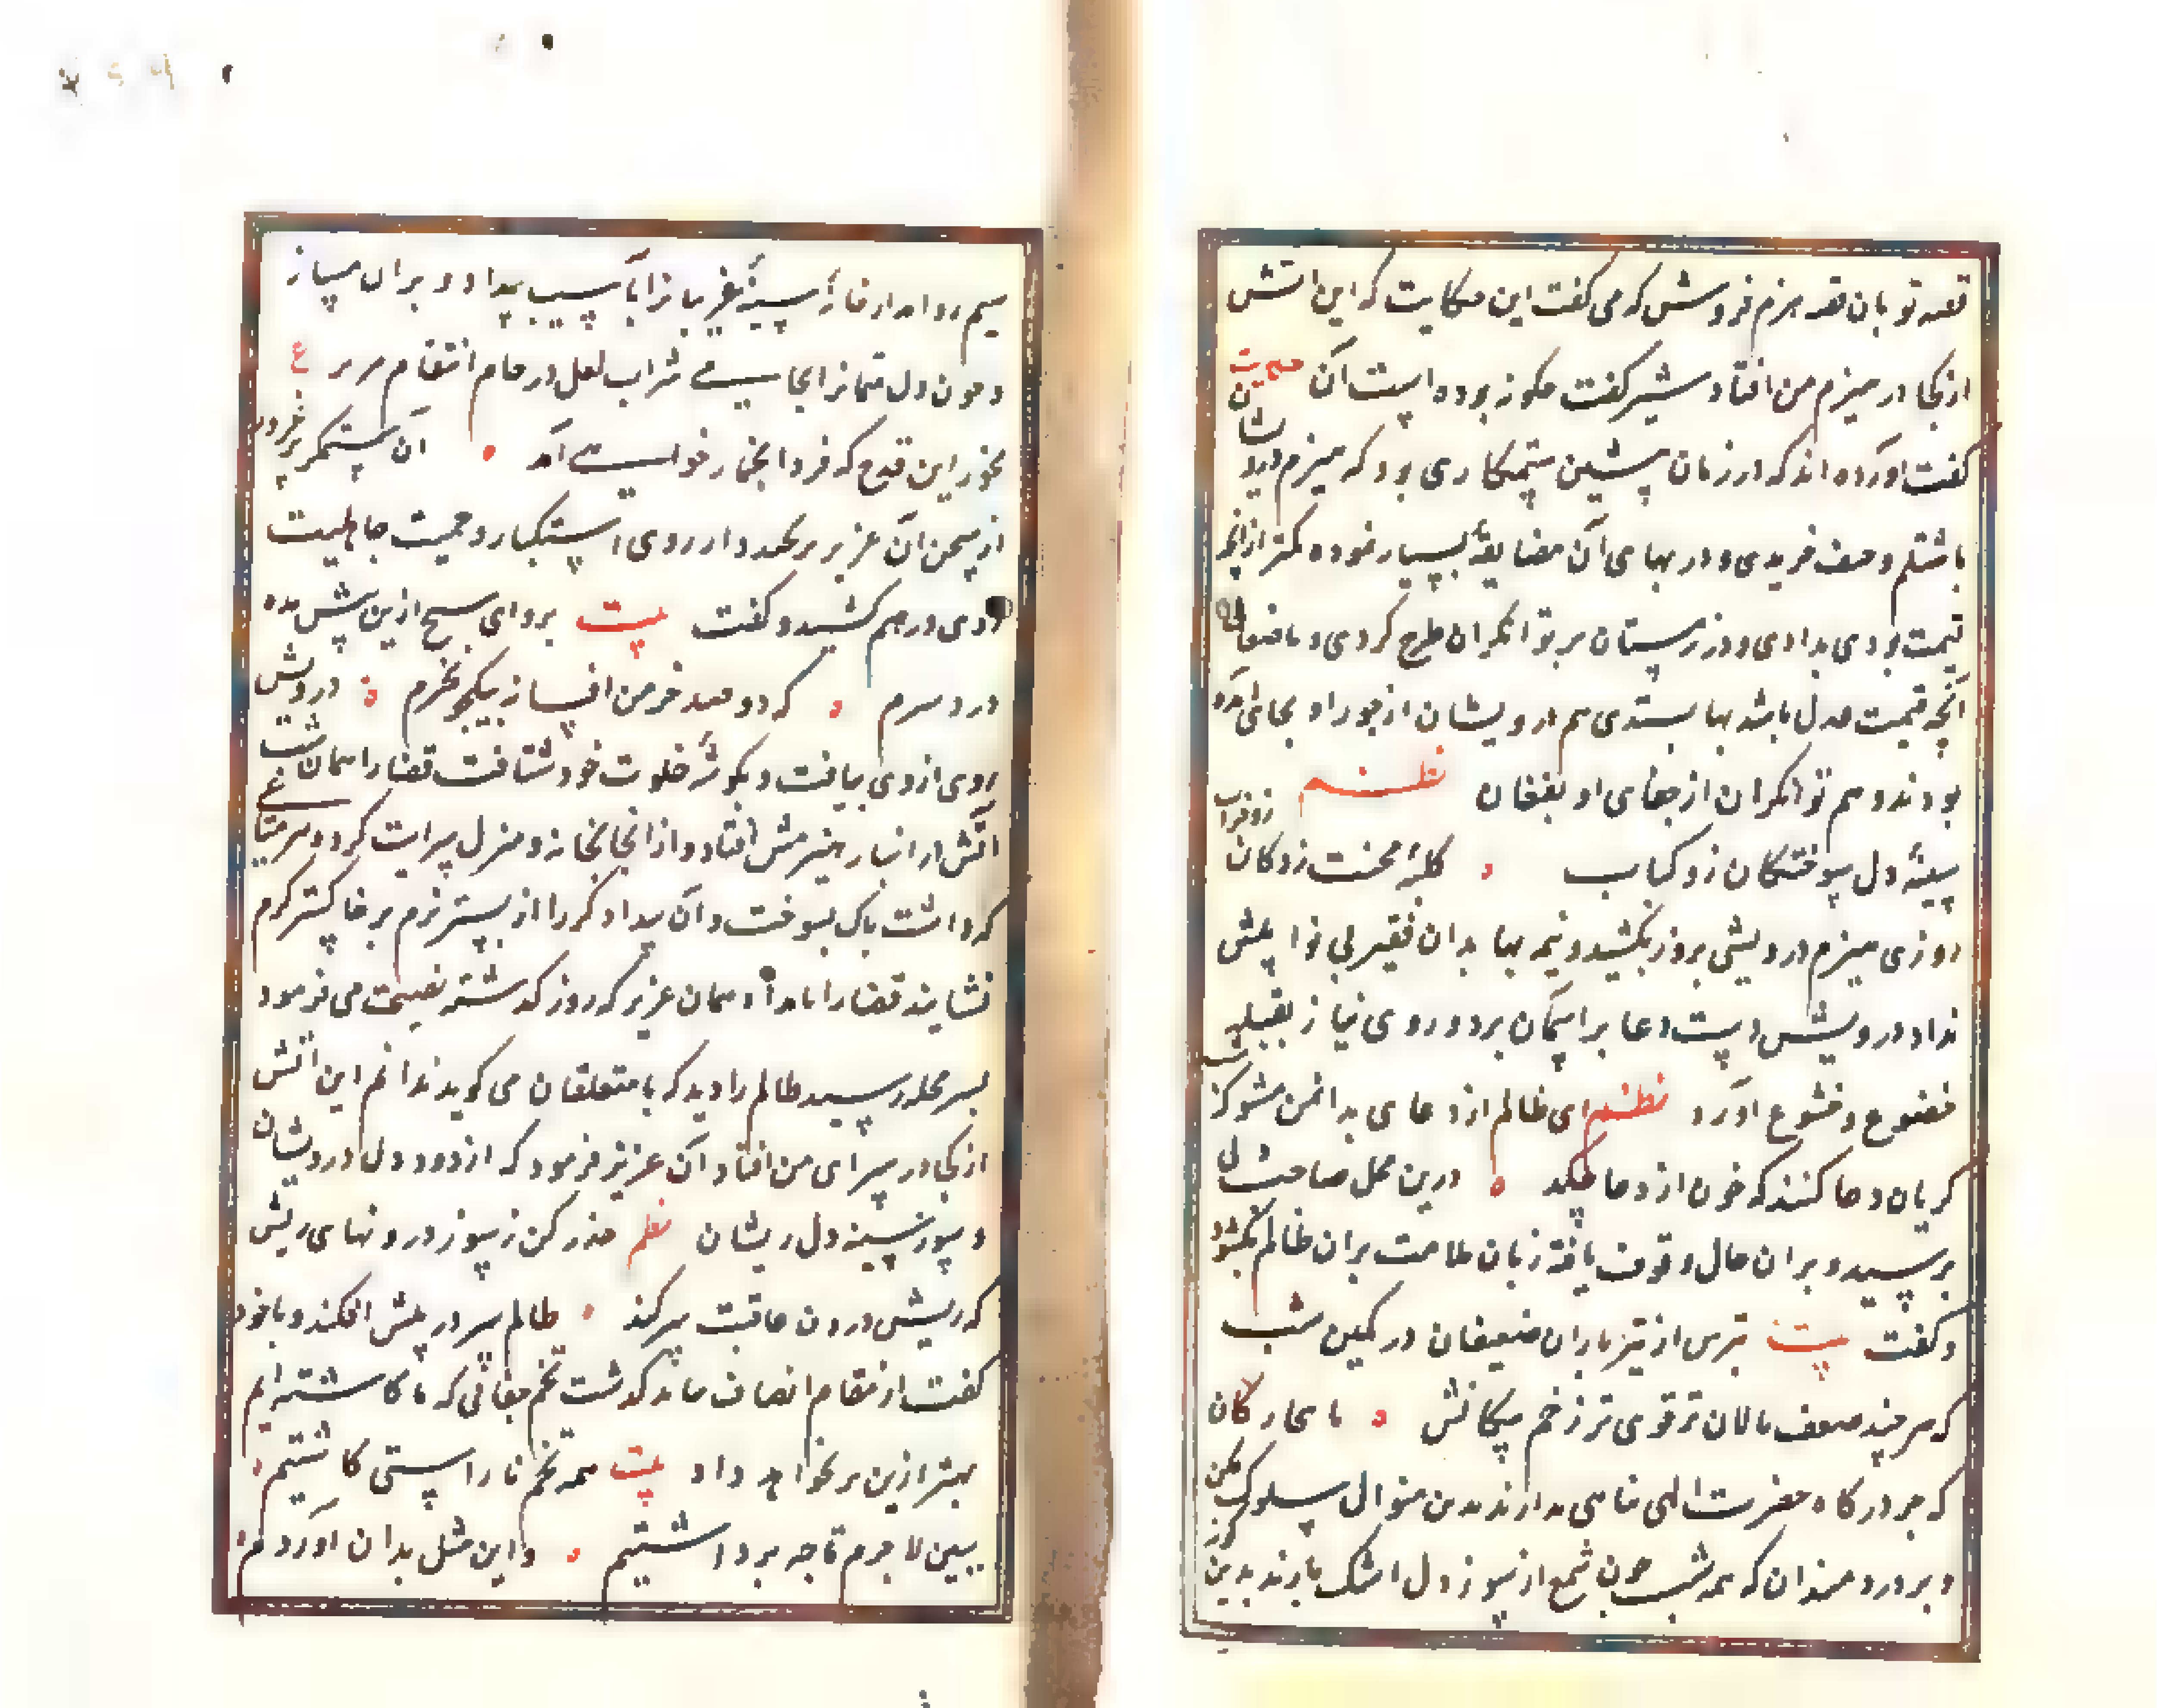 قصه تو بان قصه هیزم فروش که می گفت این حکایت که این اتش
از کجا در هیزم من افتاد شیر گفت چکونه بوده است آن
گفت آورده اند که در زمان پیشین ستمکاری بود که هیزم درویشان
باشتلم و صف خریدی و در بهای آن مضایقهٔ بسیار نموده کمتر از آنچه
قیمت بودی بدادی و در زمستان بر توانکران طرح کردی و باضعاف
آنچه قیمت عدل باشد بها بستدی هم درویشان از جور او بجان آمده
بودند و هم توانکران از جفای او بفغان نظم زو خراب
سینهٔ دل سوختکان زو کباب کلبهٔ محنت زدکان
روزی هیزم درویشی بزور بکشید و نیم بها بدان فقیر بی نوا پیش
نداد درویش دست دعا بر آسمان برد و روی نیاز بقبلهٔ
خضوع و خشوع آورد نظم ای ظالم از دعای بد ایمن مشو که
کریان دعا کنند که خون از دعا چکد درین محل صاحبدلی
برسید و بران حال وقوف یافته زبان ملامت بران ظالم بکشود
و کفت بیت بترس از تیرباران ضعیفان در کمین شب
که هر چند ضعف نالان تر قوی تر زخم پیکانش با بیچارکان
که جز درکاه حضرت الهی پناهی ندارند بدین منوال سلوک مکن
و بر دردمندان که همه شب چون شمع از سوز دل اشک بارند بدین
سیم روا مدار خانهٔ سینهٔ غریبانرا بآسیب بیداد ویران مساز
و خون دل یتیمانرا بجای شراب لعل در جام انتقام مریز ع
مخور این قدح که فردا بخمار خواهی آمد آن ستمکر پرغرور
از سخن آن عزیز برنجید و از روی استکبار و حمیت جاهلیت
روی درهم کشید و کفت بیت برو ای شیخ ازین بیش مده
درد سرم که دو صد خرمن افسانه بیکجو نخرم درویش
روی ازوی بتافت و بکوشهٔ خلوت خود شتافت قضا را همان شب
آتش در انبار هیزمش افتاد و از انجا بخانه و منزل سرایت کرد و هر متاعی
که داشت پاک بسوخت و آن بیدادکر را از بستر نرم بر خاکستر کرم
نشانید قضا را بامداد همان عزیز که روز کذشته نصیحت می فرمود
بسر محله رسید ظالم را دید که با متعلقان می کوید ندانم این آتش
از کجا در سرای من افتاد آن عزیز فرمود که از دود دل درویشان
و سوز سینهٔ دل ریشان نظم حذر کن ز سوز درونهای ریش
که ریش درون عاقبت سر کند ظالم سر در پیش افکند و با خود
کفت از مقام انصاف نباید کذشت تخم جفائی که ما کاشته ایم
بهتر ازین بر نخواهد داد بیت همه تخم ناراستی کاشتیم
ببین لا جرم تا چه برداشتیم و این مثل بدان آوردم